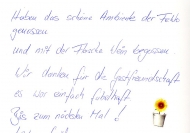 Haben das schöne Ambiente der Felder
genossen
und mit der Flasche Wein begossen.
Wir danken für die Gastfreundschaft
es war einfach fabelhaft
Bis zum nächsten Mal!